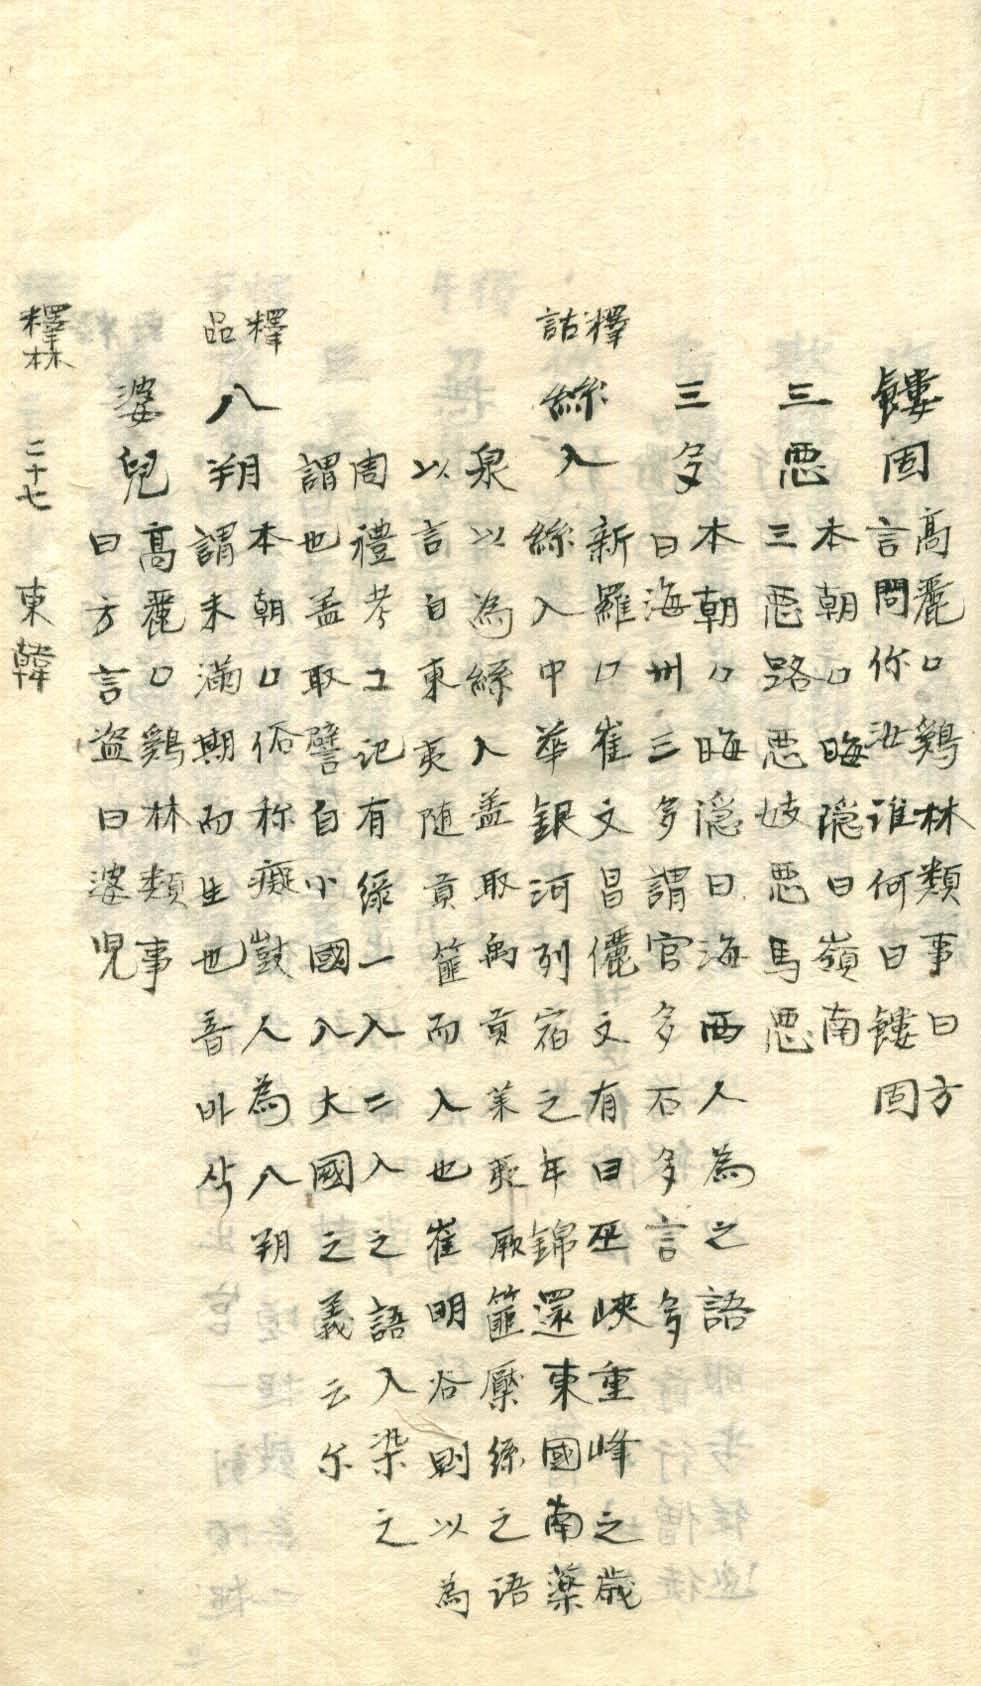 鏤固 高麗口鷄林類事曰方
言問你汝誰何曰鏤固
三惡 本朝口晦隠曰嶺南
三惡路惡妓惡馬惡
三多 本朝口晦隠曰海西人為之語
曰海州三多謂官多石多言多
釋詁
絲入 新羅口崔文昌儷文有曰巫峽重峰之歲
絲入中華銀河列宿之年錦還東國南藥
泉以為絲入盖取禹貢萊夷厥篚壓絲之语
以言自東夷随貢篚而入也崔明谷則以為
周禮考工记有緣一入二入之語入染之
謂也盖取譬自小國入大國之義云尔
釋品
八朔 本朝口俗称癡獃人為八朔
謂未滿期而生也音바삭
婆兒 高麗口鷄林類事
曰方言盗曰婆兒
釋林 二十七 東韓